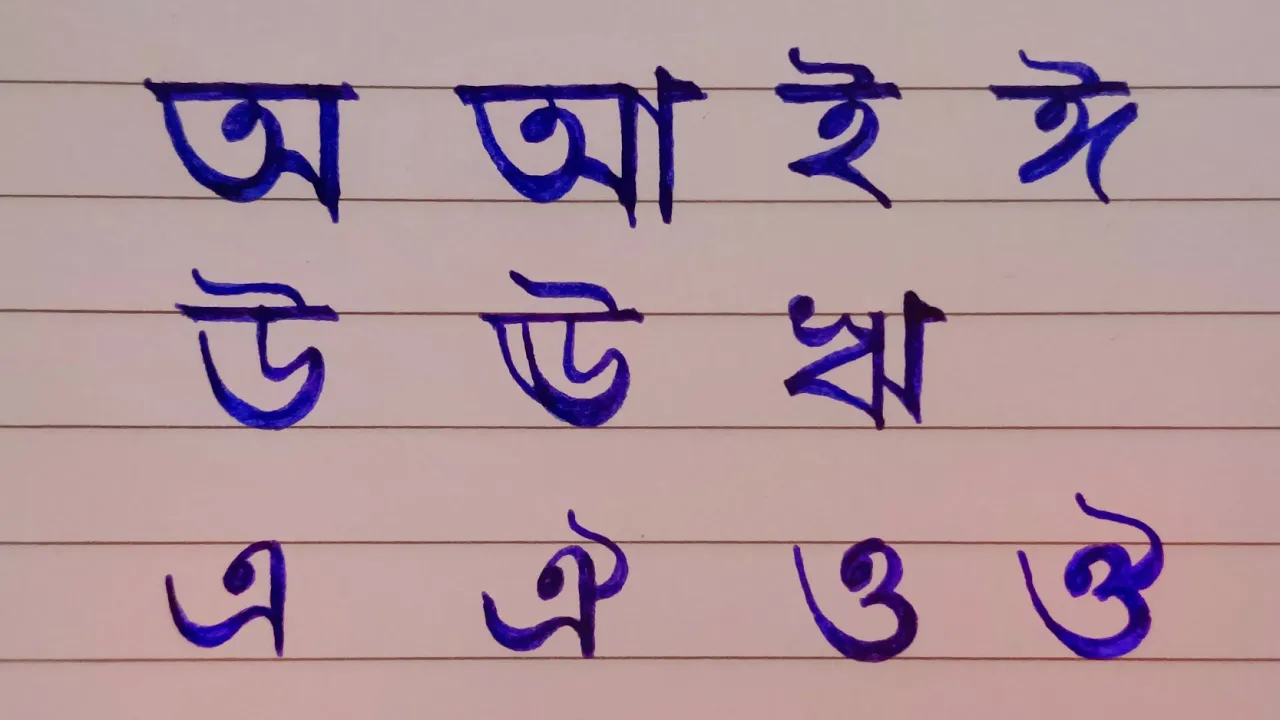 অ আ ই ঈ
উ ঊ ঋ
এ ঐ ও ঔ